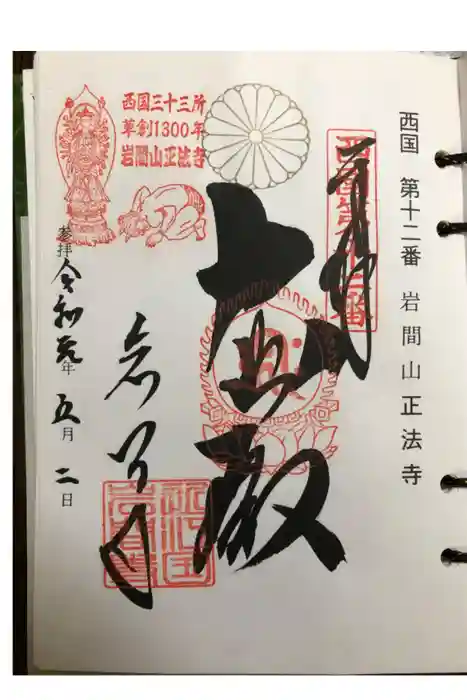 西国 第十二番 岩間山正法寺
奉拝
西国第十二番
大悲殿
岩間寺
西国三十三所
草創1300年
岩間山正法寺
参拝 令和元年 五月 二日